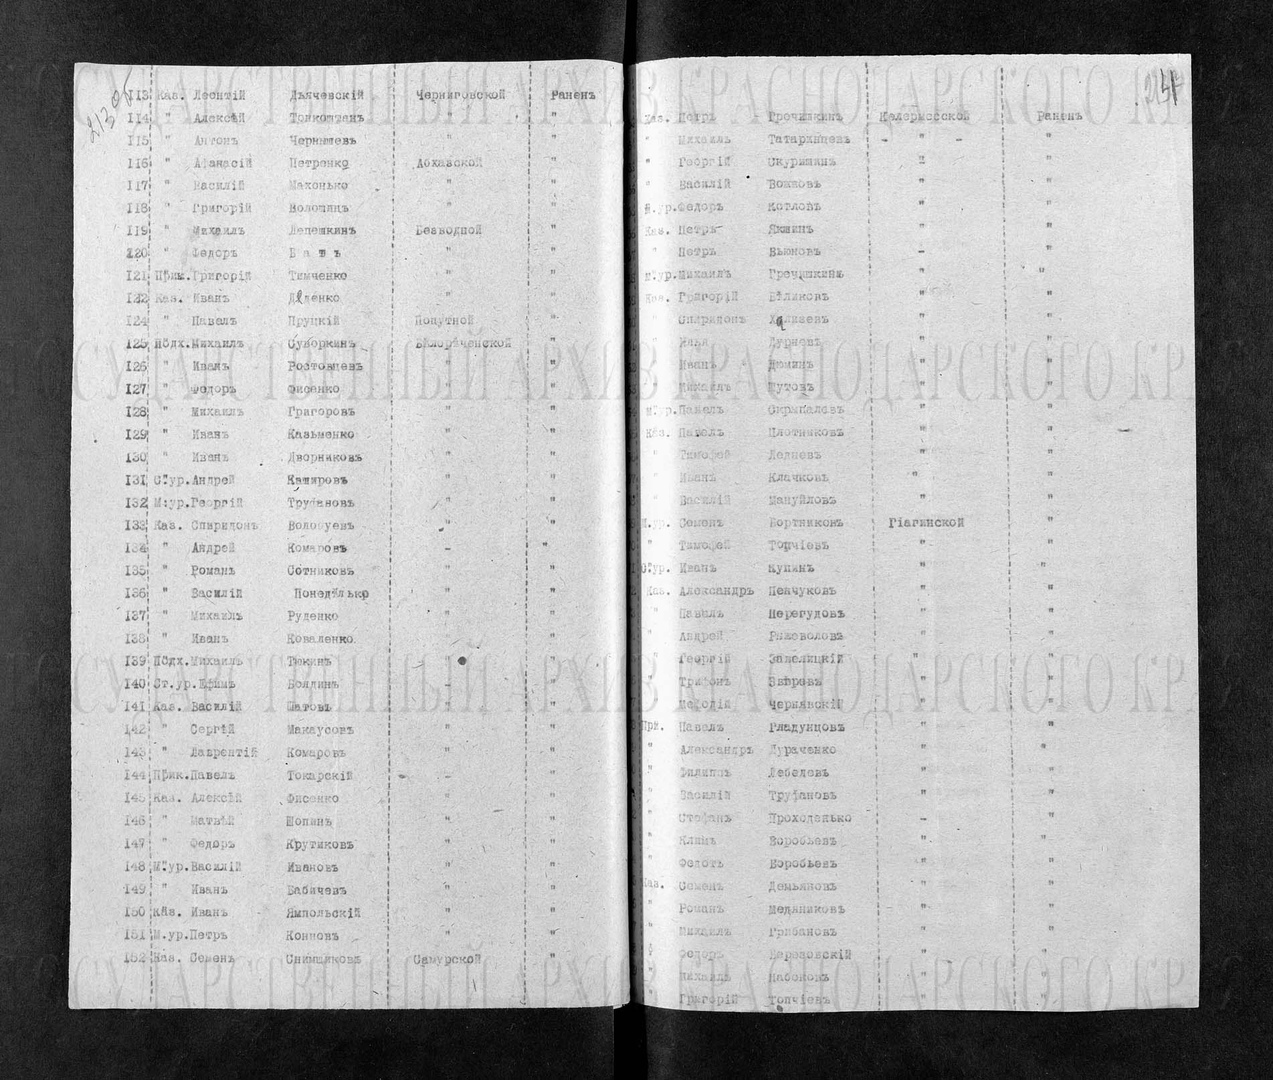 213 об
113 Каз. Леонтій Дьячевскій Черниговской Раненъ
114 " Алексѣй Трикоштанъ " "
115 " Антонъ Чернышевъ " "
116 " Афанасій Петренко Абхазской "
117 " Василій Махонько " "
118 " Григорій Волошинъ " "
119 " Михаилъ Лепешкинъ Безводной "
120 " Федоръ Б а т ъ " "
121 Прик. Григорій Тимченко " "
122 Каз. Иванъ Дѣденко " "
124 " Павелъ Пруцкій Попутной "
125 Пдх. Михаилъ Суворкинъ Бѣлорѣченской "
126 " Иванъ Ростовцевъ " "
127 " Федоръ Фисенко " "
128 " Михаилъ Григоровъ " "
129 " Иванъ Казьменко " "
130 " Иванъ Дворниковъ " "
131 С.ур. Андрей Кашировъ " "
132 М.ур. Георгій Труфановъ " "
133 Каз. Спиридонъ Волобуевъ " "
134 " Андрей Комаровъ - "
135 " Романъ Сотниковъ " "
136 " Василій Понедѣлько " "
137 " Михаилъ Руденко " "
138 " Иванъ Коваленко " "
139 Пдх. Михаилъ Тюкинъ " "
140 Ст.ур. Ефимъ Болдинъ - "
141 Каз. Василій Шатовъ " "
142 " Сергѣй Макаусовъ " "
143 " Лаврентій Комаровъ " "
144 Прик. Павелъ Токарскій - "
145 Каз. Алексѣй Фисенко " "
146 " Матвѣй Шопинъ " "
147 " Федоръ Крутиковъ " "
148 М.ур. Василій Ивановъ " "
149 " Иванъ Бабичевъ " "
150 Каз. Иванъ Ямпольскій " "
151 М.ур. Петръ Конновъ " "
152 Каз. Семенъ Снимщиковъ Самурской "
214
Каз. Петръ Гречишкинъ Келермесской Раненъ
" Михаилъ Татаринцевъ - - "
" Георгій Скуришинъ " "
" Василій Вошковъ " "
М.ур. Федоръ Котловъ " "
Каз. Петръ Якшинъ " "
" Петръ Вьюновъ - "
М.ур. Михаилъ Гречишкинъ " "
Каз. Григорій Бѣликовъ " "
" Спиридонъ Хализевъ " "
" Илья Дурневъ " "
" Иванъ Дюминъ " "
" Михаилъ Шутовъ " "
М.ур. Павелъ Скрыпаловъ " "
Каз. Павелъ Плотниковъ " "
" Тимофей Леднев " "
" Иванъ Клачковъ " "
" Василій Мануйловъ " "
М.ур. Семенъ Бортниковъ Гіагинской "
" Тимофей Топчіевъ " "
С.ур. Иванъ Купинъ " "
Каз. Александръ Пенчуковъ " "
" Павелъ Перегудовъ " "
" Андрей Рыжеволовъ " "
" Георгій Завелицкій " "
" Трифонъ Звѣревъ " "
" Мефодій Чернявскій " "
При. Павелъ Гладунцовъ " "
" Александръ Дураченко " "
" Филиппъ Лебедевъ " "
" Василій Труфановъ " "
" Стефанъ Проходенько - "
" Климъ Воробьевъ " "
" Федотъ Воробьевъ " "
Каз. Семенъ Демьяновъ " "
" Романъ Медяниковъ " "
" Михаилъ Грибановъ " "
" Федоръ Березовскій " "
" Михаилъ Набоковъ " "
" Григорій Топчіевъ " "
ГОСУДАРСТВЕННЫЙ АРХИВ КРАСНОДАРСКОГО КРАЯ